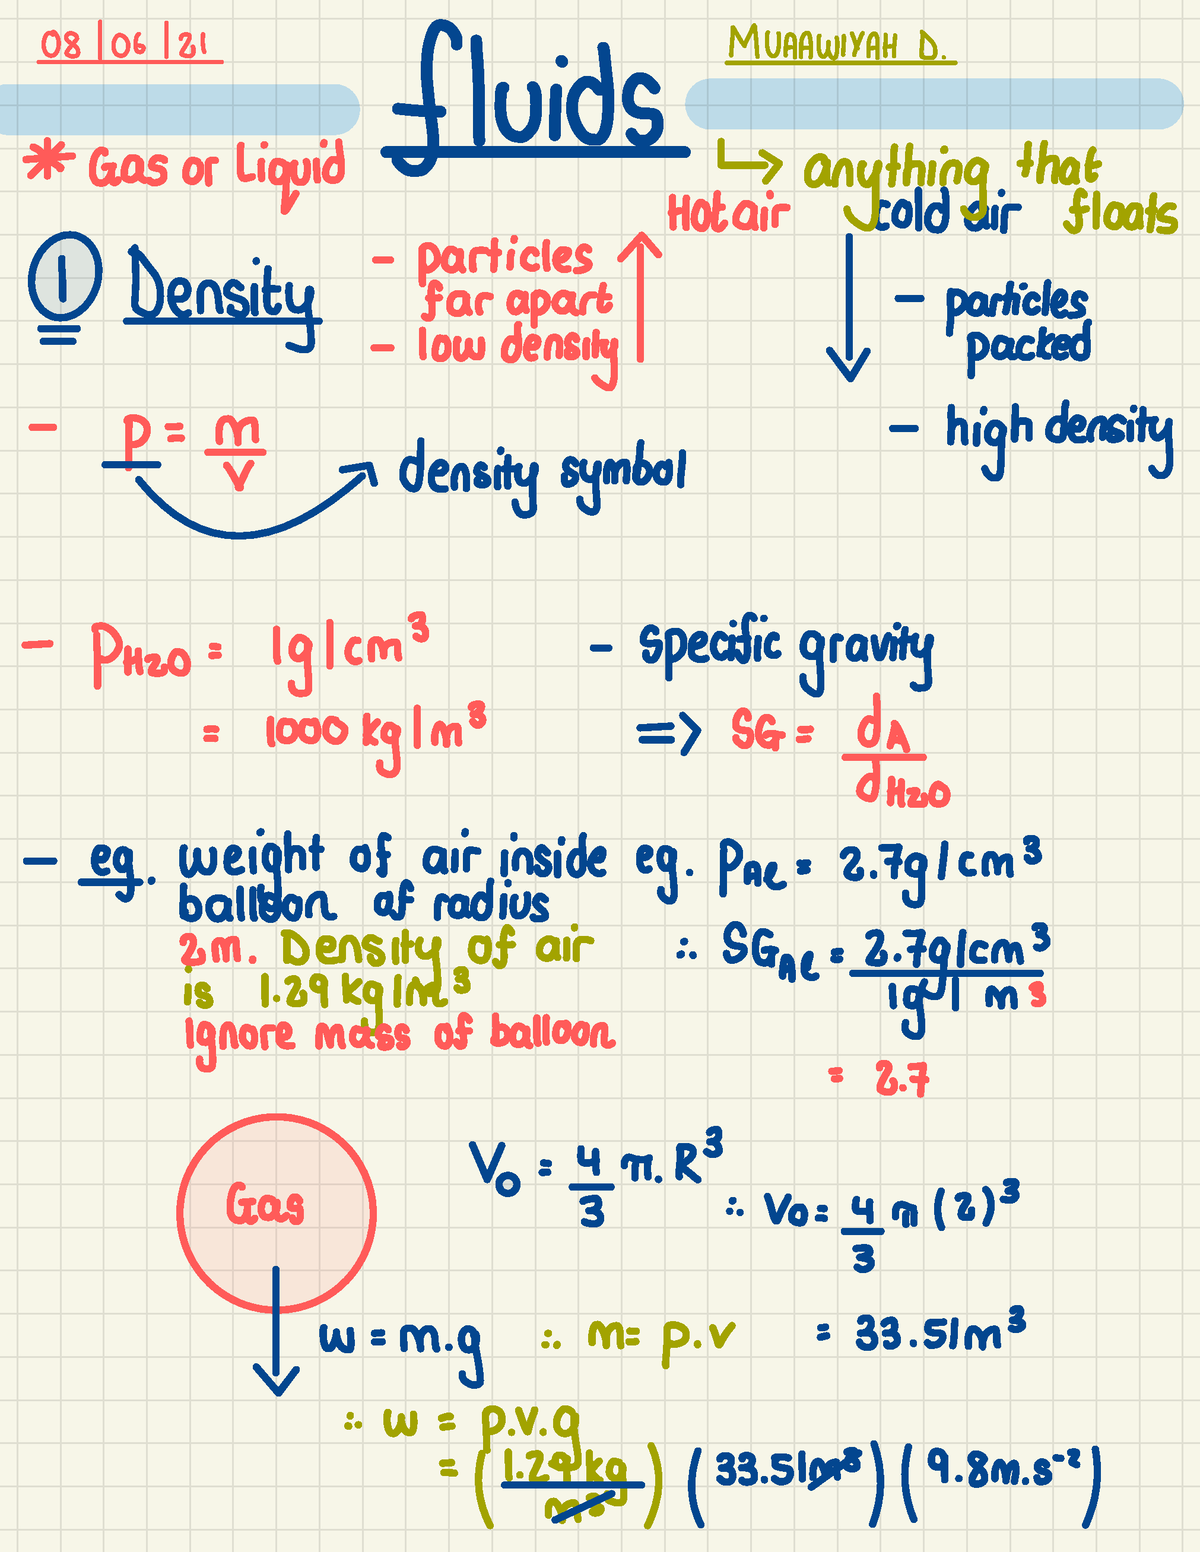 08 | 06 | 21
fluids
MUAAWIYAH D.
* Gas or Liquid
↳ anything that floats
① Density
Hot air
- particles far apart
- low density
cold air
- particles packed
- high density
- p = m/v
density symbol
- pH2O = 1g/cm³
= 1000 kg/m³
- Specific gravity
=> SG = dA/dH2O
- eg. weight of air inside
balloon of radius
2m. Density of air
is 1.29 kg/m³
ignore mass of balloon
eg. pAl = 2.7g/cm³
∴ SGAl = 2.7g/cm³
1g/m³
= 2.7
Gas
Vo = 4/3 π. R³
∴ Vo = 4/3 π (2)³
= 33.51m³
w = m.g ∴ m = p.v
∴ w = p.v.g
= (1.29 kg/m³) (33.51m³) (9.8m.s⁻²)